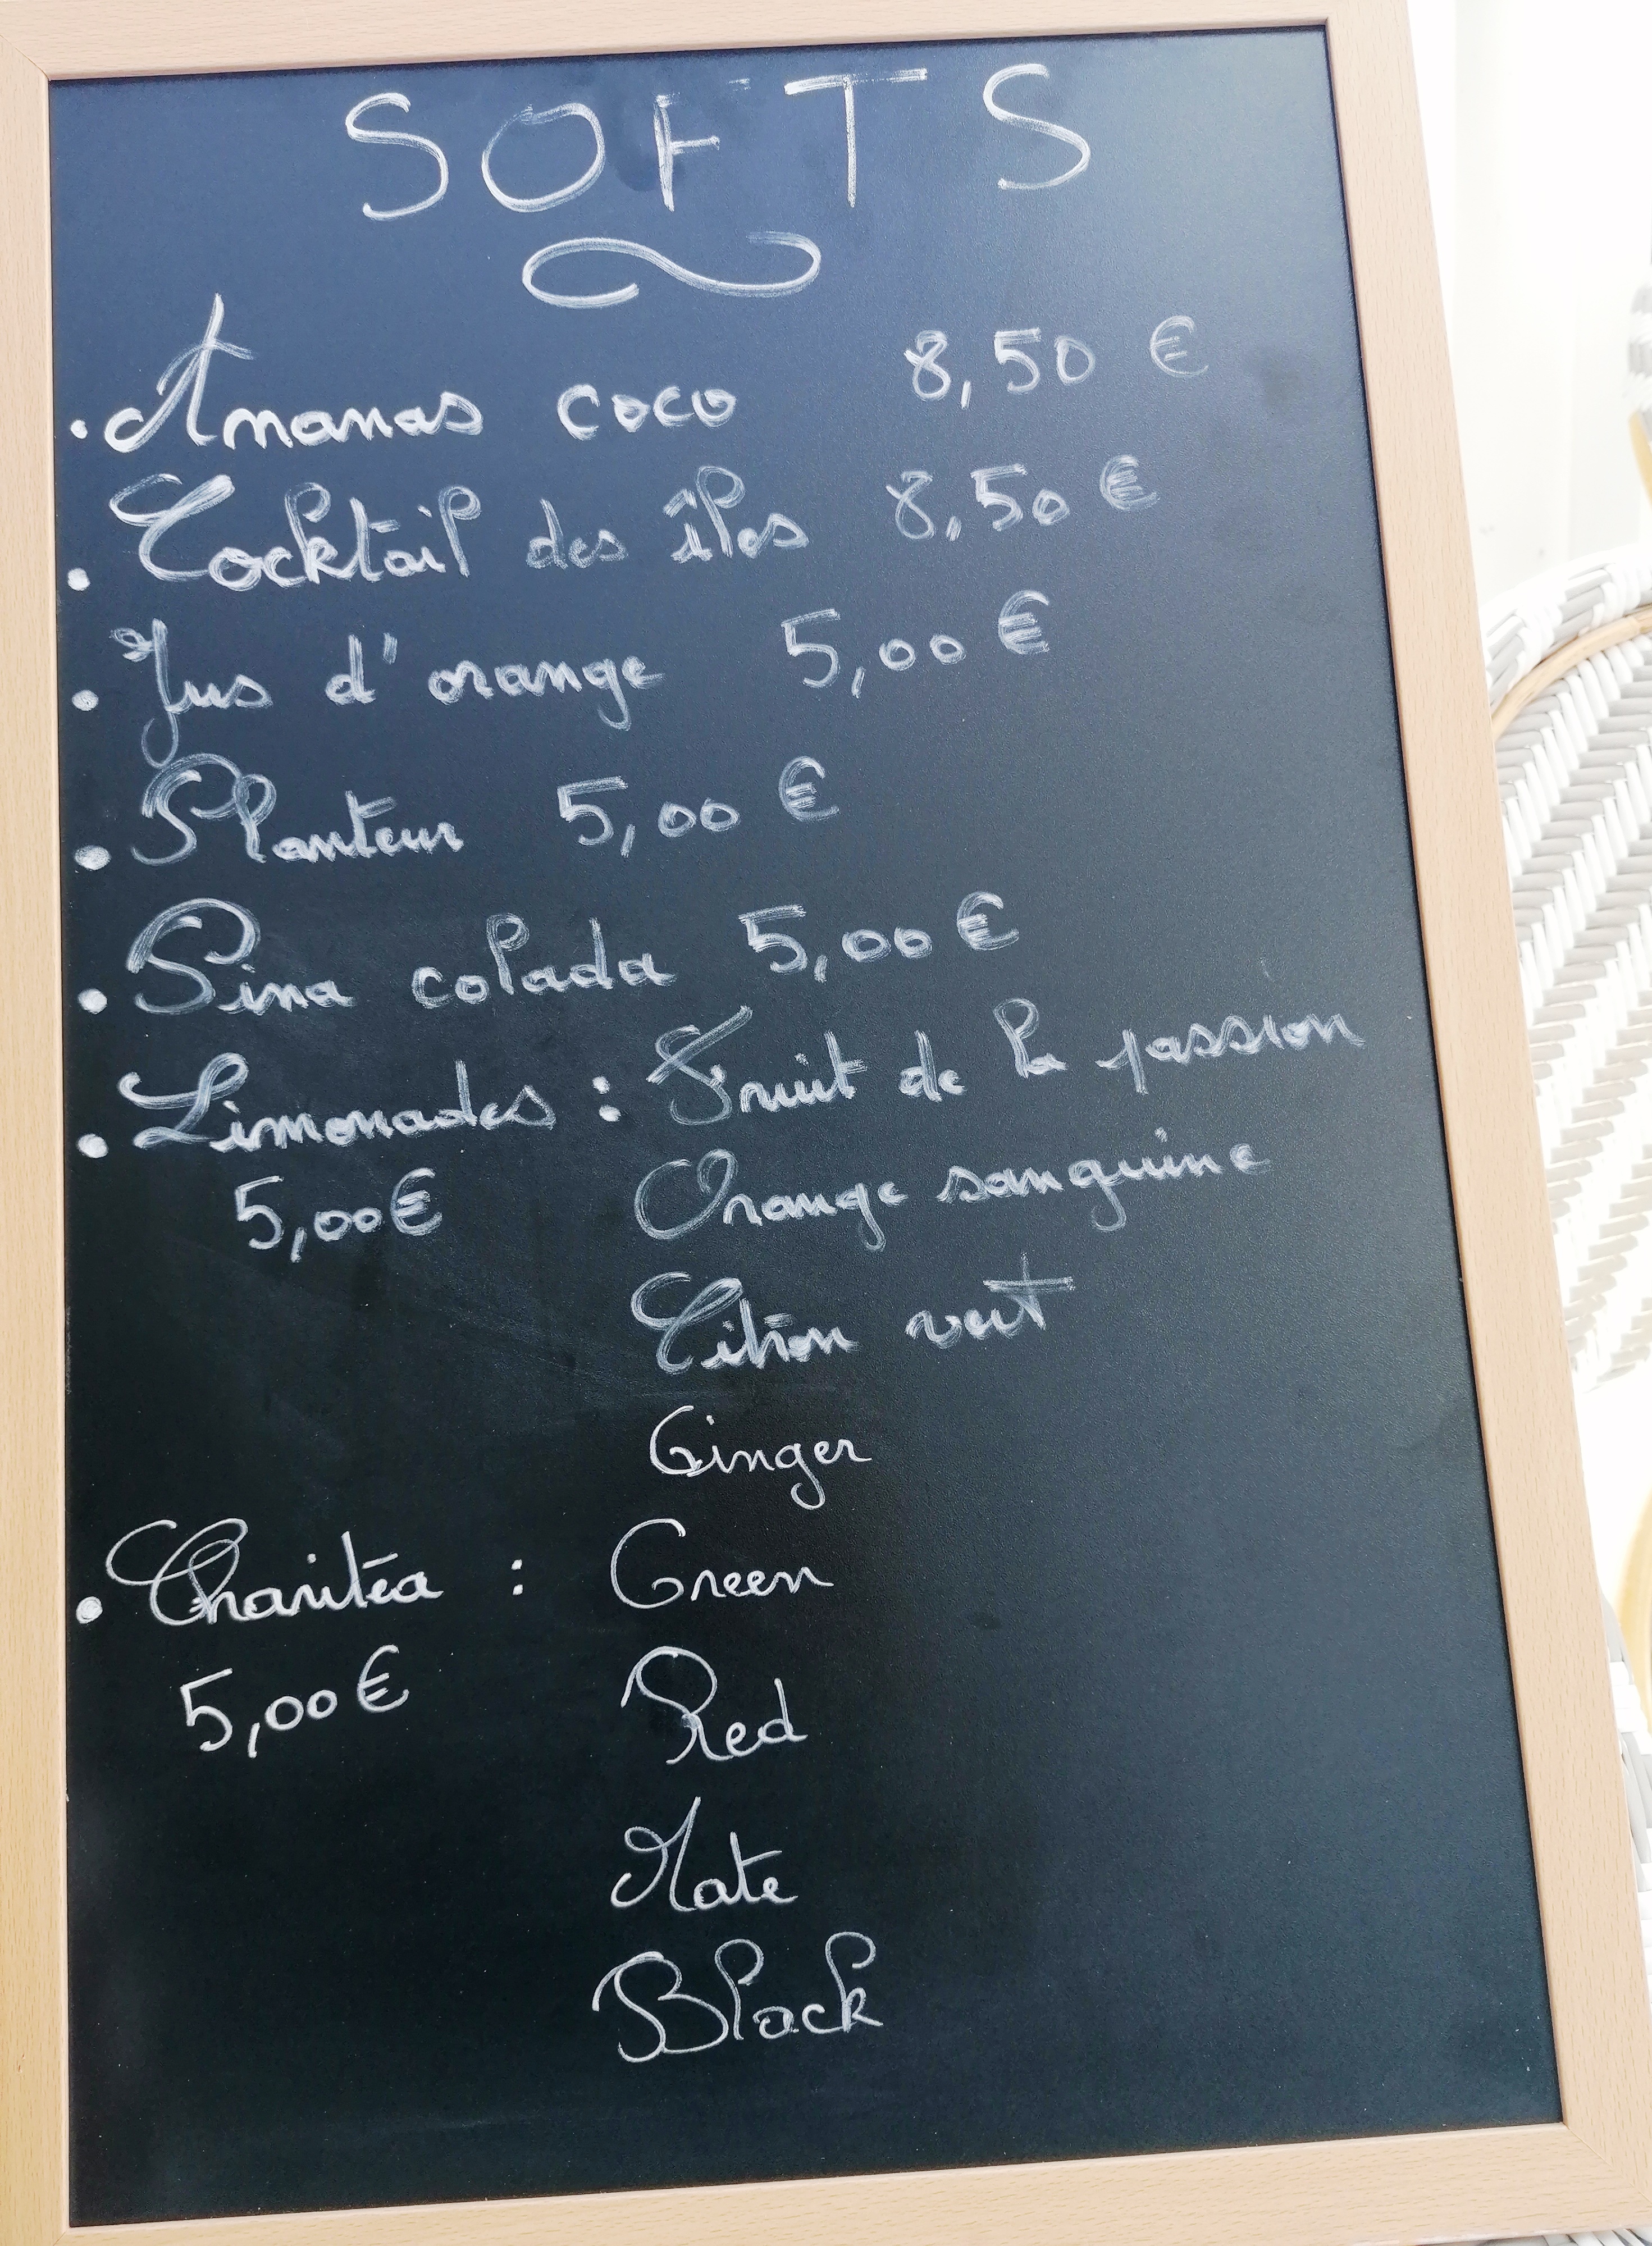 SOFTS
• Ananas coco 8,50 €
• Cocktail des îles 8,50 €
• Jus d'orange 5,00 €
• Planteur 5,00 €
• Pina colada 5,00 €
• Limonades : Fruit de la passion
5,00€ Orange sanguine
Citron vert
Ginger
• Charitéa : Green
5,00€ Red
Mate
Black